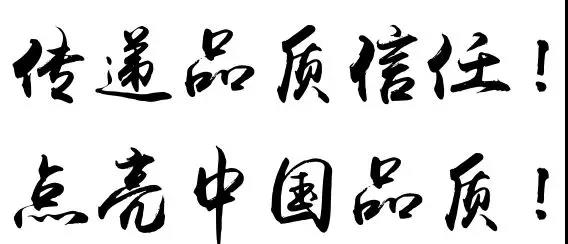 传递品质信任！
点亮中国品质！